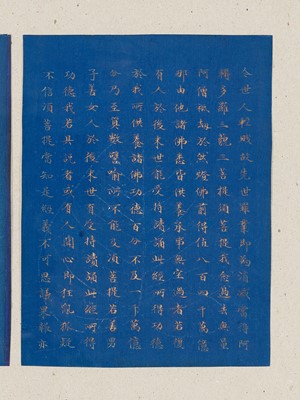 今世人輕賤故先世罪業即為消滅當得阿
耨多羅三藐三菩提須菩提我念過去無量
阿僧祇劫於然燈佛前得值八百四千萬億
那由他諸佛悉皆供養承事無空過者若復
有人於後末世能受持讀誦此經所得功德
於我所供養諸佛功德百分不及一千萬億
分乃至算數譬喻所不能及須菩提若善男
子善女人於後末世有受持讀誦此經所得
功德我若具說者或有人聞心即狂亂狐疑
不信須菩提當知是經義不可思議果報亦